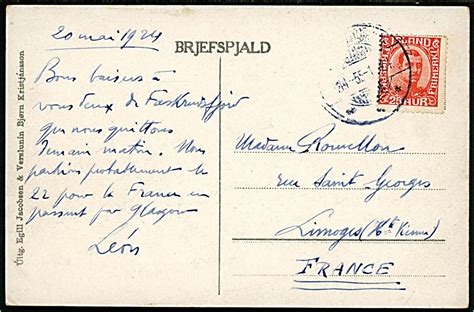 20 mai 1924
BRJEFSPJALD
Bons baisers à
vous deux de Faskrudsfjord
que nous quittons
demain matin. Nous
partirons probablement le
22 pour la France en
passant par Glasgow
Léon
Madame Rouvellon
rue Saint Georges
Limoges (Hte Vienne)
FRANCE
Útg. Egill Jacobsen & Verslunin Björn Kristjánsson
ÍSLAND